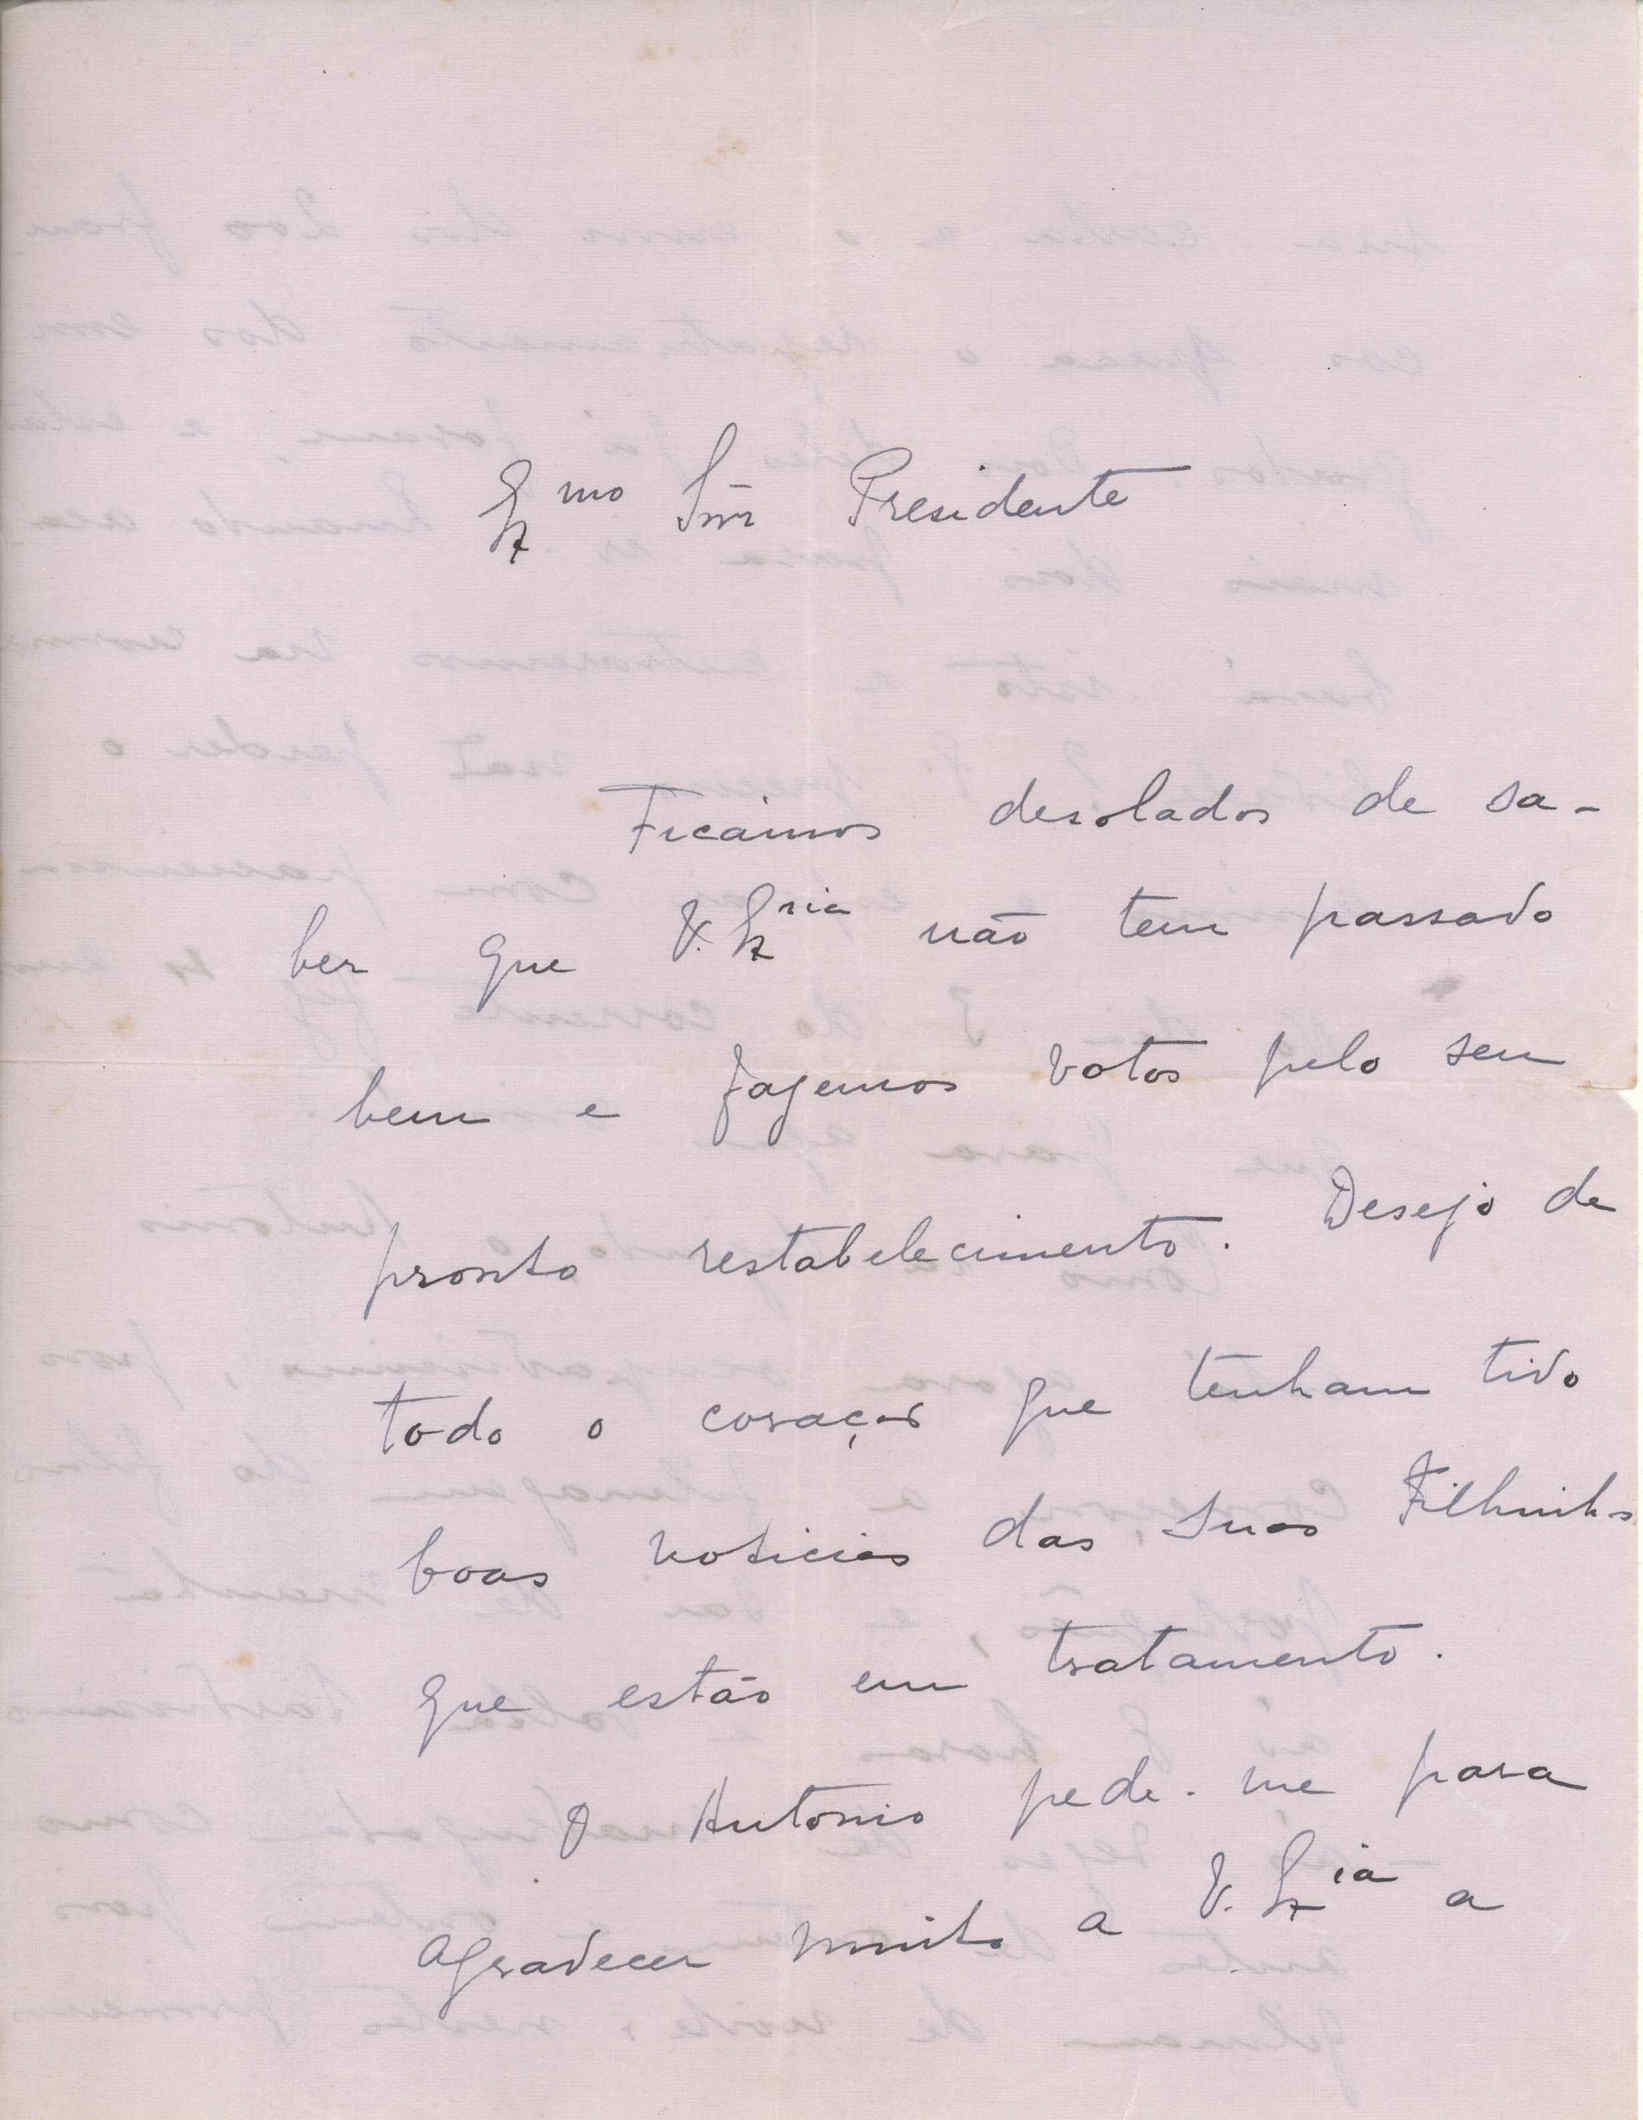 Exmo Snr Presidente
Ficámos desolados de sa-
ber que V. Exria não tem passado
bem e fazemos votos pelo seu
pronto restabelecimento. Desejo de
todo o coração que tenham tido
boas noticias das suas Filhinhas
que estão em tratamento.
O Antonio pede-me para
agradecer muito a V. Exia a